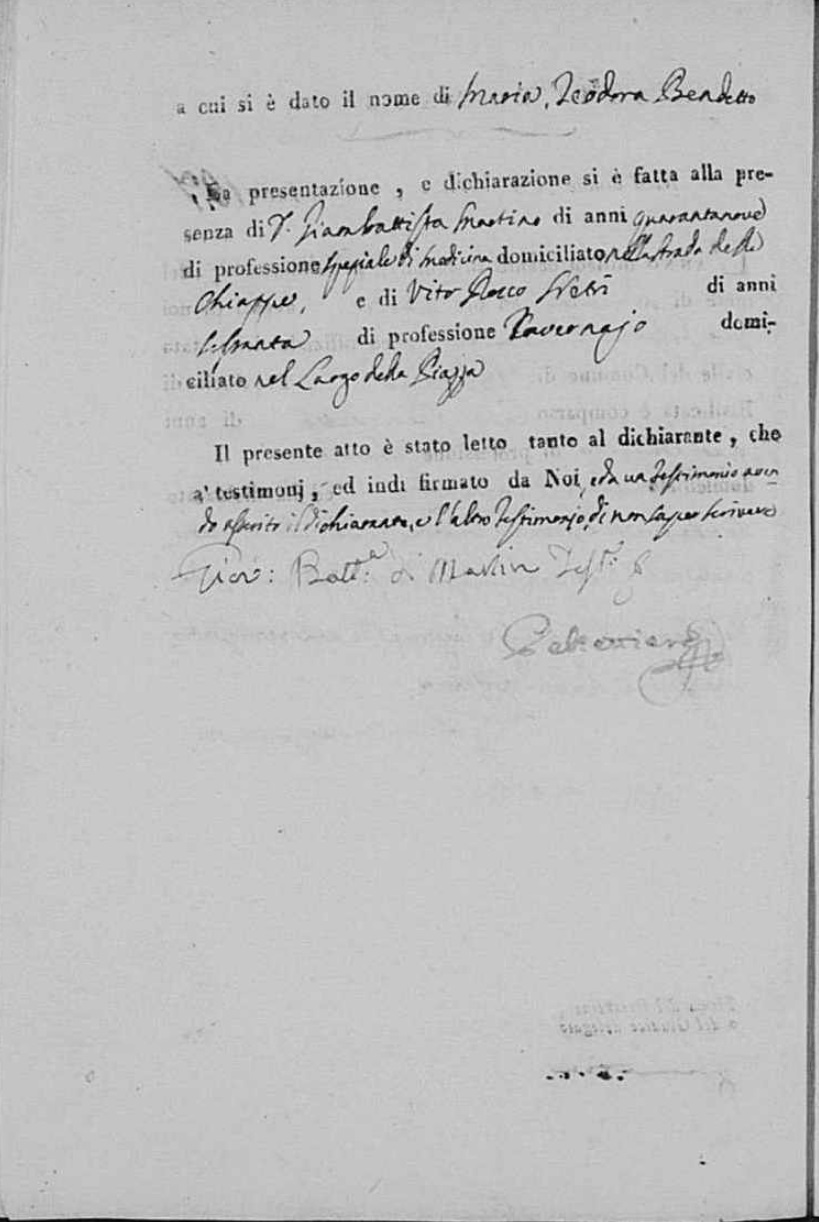 a cui si è dato il nome di Maria, Teodora Benedetto
La presentazione, e dichiarazione si è fatta alla pre-
senza di D. Giambattista Martino di anni quarantanove
di professione speziale di medicina domiciliato nella strada delle
Chiappe, e di Vito Rocco di anni
sessanta di professione Tavernajo domi-
ciliato nel Largo della Piazza
Il presente atto è stato letto tanto al dichiarante, che
a' testimonj, ed indi firmato da Noi, e da un testimonio aven
do asserito il dichiarante, e l'altro testimonio, di non saper scrivere
Giov: Batt.a di Martin Test.